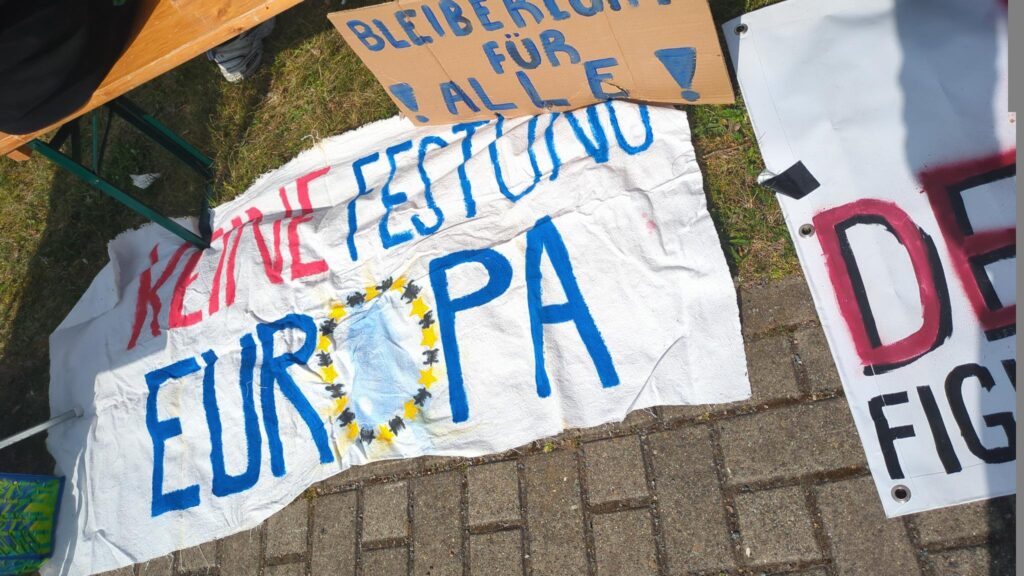 BLEIBERECHT
FÜR
! ALLE !
KEINE FESTUNG
EUROPA
DE
FIG